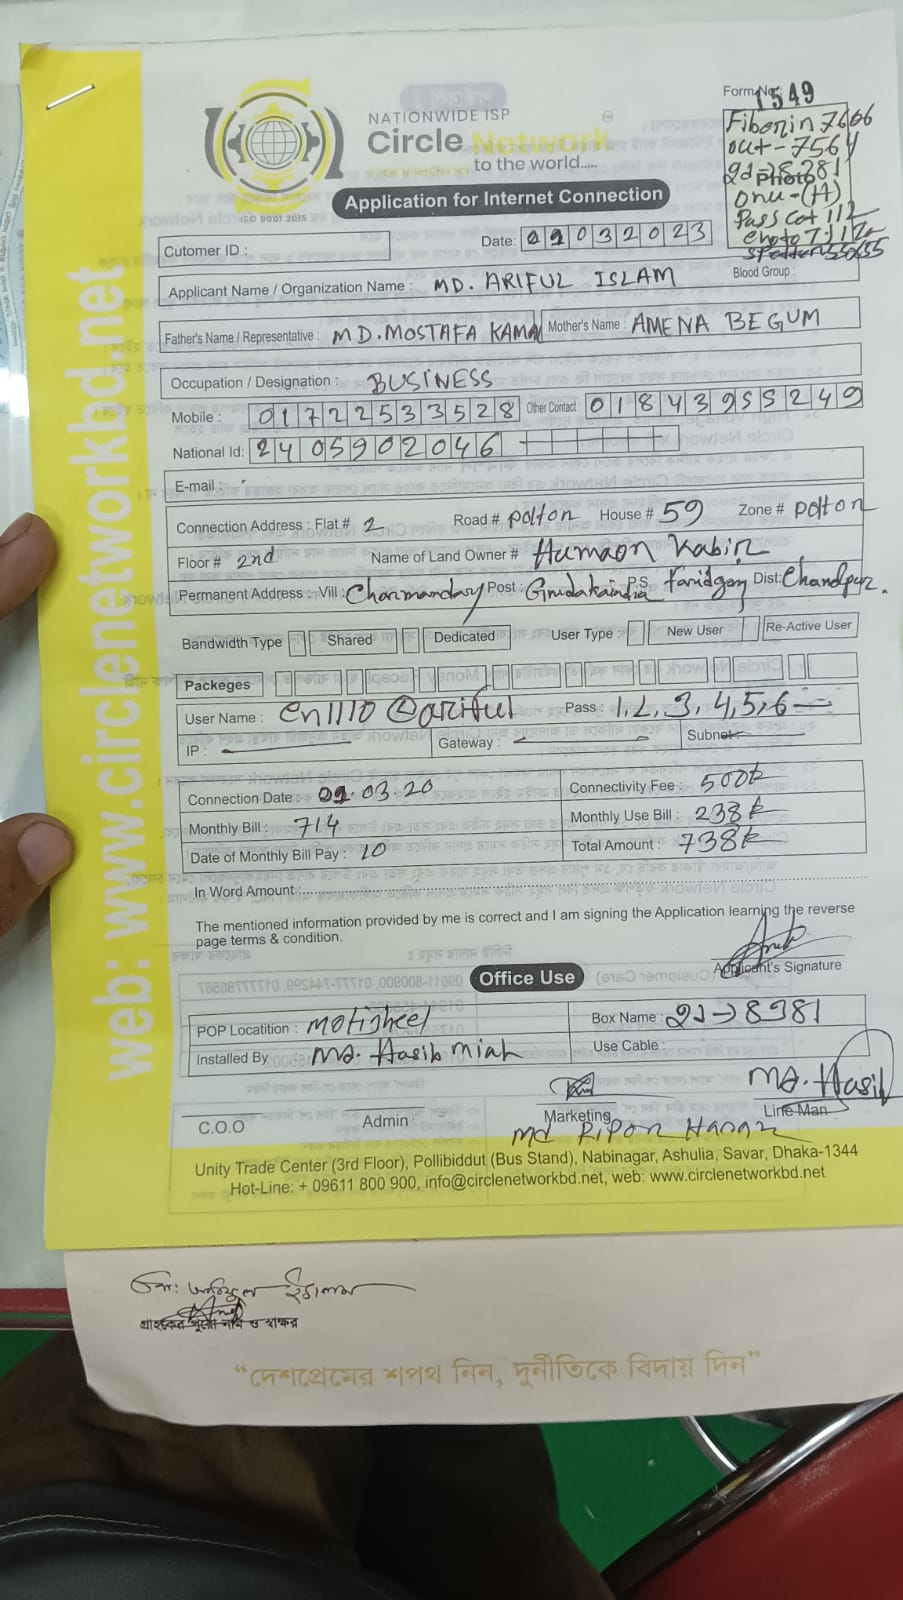 Form No: 1549
NATIONWIDE ISP
Circle Network
to the world.....
ISO 9001 2015
Fiberin 7606
out - 7564
Photo
onu-(H)
Application for Internet Connection
Cutomer ID :
Date: 09032023
Blood Group :
Applicant Name / Organization Name : MD. ARIFUL ISLAM
Father's Name / Representative : MD. MOSTAFA KAMAL Mother's Name : AMENA BEGUM
Occupation / Designation : BUSINESS
Mobile : 01722533528 Other Contact : 01843955249
National Id: 2405902046
E-mail :
Connection Address : Flat # 2 Road # polton House # 59 Zone # polton
Floor # 2nd Name of Land Owner # Humaon Kabir
Permanent Address : Vill : Charmandary Post : P.S. Faridgonj Dist: Chandpur.
Bandwidth Type Shared Dedicated User Type New User Re-Active User
Packeges
User Name : cn1110@ariful Pass : 1,2,3,4,5,6
IP : Gateway : Subnet:
Connection Date : 09.03.20 Connectivity Fee : 500tk
Monthly Bill : 714 Monthly Use Bill : 238tk
Date of Monthly Bill Pay : 10 Total Amount : 738tk
In Word Amount :
The mentioned information provided by me is correct and I am signing the Application learning the reverse
page terms & condition.
Applicant's Signature
Office Use
POP Locatition : Motijheel Box Name : 2J→8981
Installed By : Md. Hasib Miah Use Cable :
Md. Hasib
C.O.O Admin Marketing Line Man
Md Ripon
Unity Trade Center (3rd Floor), Pollibiddut (Bus Stand), Nabinagar, Ashulia, Savar, Dhaka-1344
Hot-Line: + 09611 800 900, info@circlenetworkbd.net, web: www.circlenetworkbd.net
web: www.circlenetworkbd.net
মো: আরিফুল ইসলাম
গ্রাহকের পুরো নাম ও স্বাক্ষর
“দেশপ্রেমের শপথ নিন, দুর্নীতিকে বিদায় দিন”